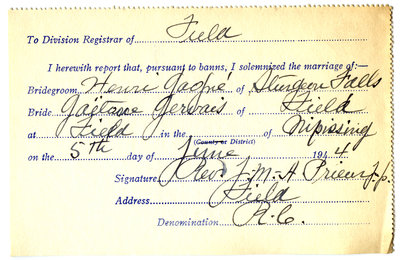 To Division Registrar of Field
I herewith report that, pursuant to banns, I solemnized the marriage of:—
Bridegroom Henri Gagné of Sturgeon Falls
Bride Gaëtane Gervais of Field
at Field in the of Nipissing
(County or District)
on the 5th day of June 1944
Signature Rev. J.-M.-A Prieur p.p.
Address Field
Denomination R.C.